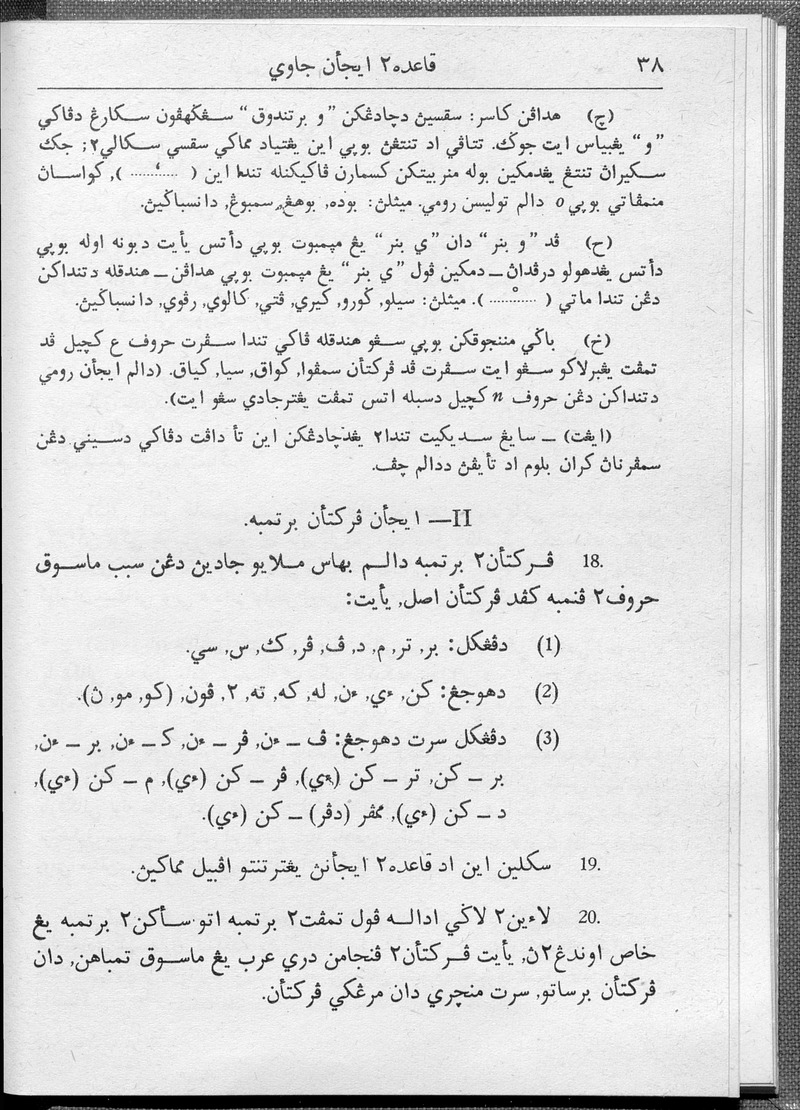 ٣٨ قاعده٢ ايجأن جاوي
(چ) هداڤن كاسر: سقسيڽ دچادڠكن ”و برتندوق“ سڠکهڤون سكارڠ دڤاكي
”و“ يڠبياس ايت جوݢ. تتاڤي اد تنتڠن بوپي اين يڠتياد مماكي سقسي سكالي٢; جک
سكيراڽ تنتڠ يڠدمكين بوله منربيتكن كسمارن ڤاكيكنله تندا اين ( ......ʻ...... ), كواساڽ
منمڤاتي بوپي o دالم توليسن رومي. ميثلڽ: بوده, بوهڠ, سمبوڠ, دانسباݢيڽ.
(ح) ڤد ”و بنر“ دان ”ي بنر“ يڠ مڽمبوت بوپي دأتس يأيت دبونه اوله بوپي
دأتس يڠدهولو درڤداڽ ـ دمكين ڤول ”ي بنر“ يڠ مڽمبوت بوپي هداڤن ـ هندقله دتنداكن
دڠن تندا ماتي ( ......ْ...... ). ميثلڽ: سيلو, ݢورو, كيري, ڤتي, كالوي, رڤوي, دانسباݢيڽ.
(خ) باݢي مننجوقكن بوپي سڠو هندقله ڤاكي تندا سڤرت حروف ع كچيل ڤد
تمڤت يڠبرلاكو سڠو ايت سڤرت ڤد ڤركتأن سمڤوا, كواق, سيا, كياق. (دالم ايجأن رومي
دتنداكن دڠن حروف n كچيل دسبله اتس تمڤت يڠترجادي سڠو ايت).
(ايڠت) ـ سايڠ سديكيت تندا٢ يڠدچادڠكن اين تأ داڤت دڤاكي دسيني دڠن
سمڤرناڽ كران بلوم اد تأيڤڽ ددالم چڤ.
II— ايجأن ڤركتأن برتمبه.
18. ڤركتأن٢ برتمبه دالم بهاس ملايو جادين دڠن سبب ماسوق
حروف٢ ڤنمبه كڤد ڤركتأن اصل, يأيت:
(1) دڤڠكل: بر, تر, م, د, ڤ, ڤر, ک, س, سي.
(2) دهوجڠ: كن, ءي, ءن, له, كه, ته, ٢, ڤون, (كو, مو, ڽ).
(3) دڤڠكل سرت دهوجڠ: ڤ ـ ءن, ڤر ـ ءن, كـ ـ ءن, بر ـ ءن,
بر ـ كن, تر ـ كن (ءي), ڤر ـ كن (ءي), م ـ كن (ءي),
د ـ كن (ءي), ممڤر (دڤر) ـ كن (ءي).
19. سكلين اين اد قاعده٢ ايجأنڽ يڠترتنتو اڤبيل مماكيڽ.
20. لاءين٢ لاݢي اداله ڤول تمڤت٢ برتمبه اتو سأكن٢ برتمبه يڠ
خاص اوندڠ٢ڽ, يأيت ڤركتأن٢ ڤنجامن دري عرب يڠ ماسوق تمباهن, دان
ڤركتأن برساتو, سرت منچري دان مرڠكي ڤركتأن.